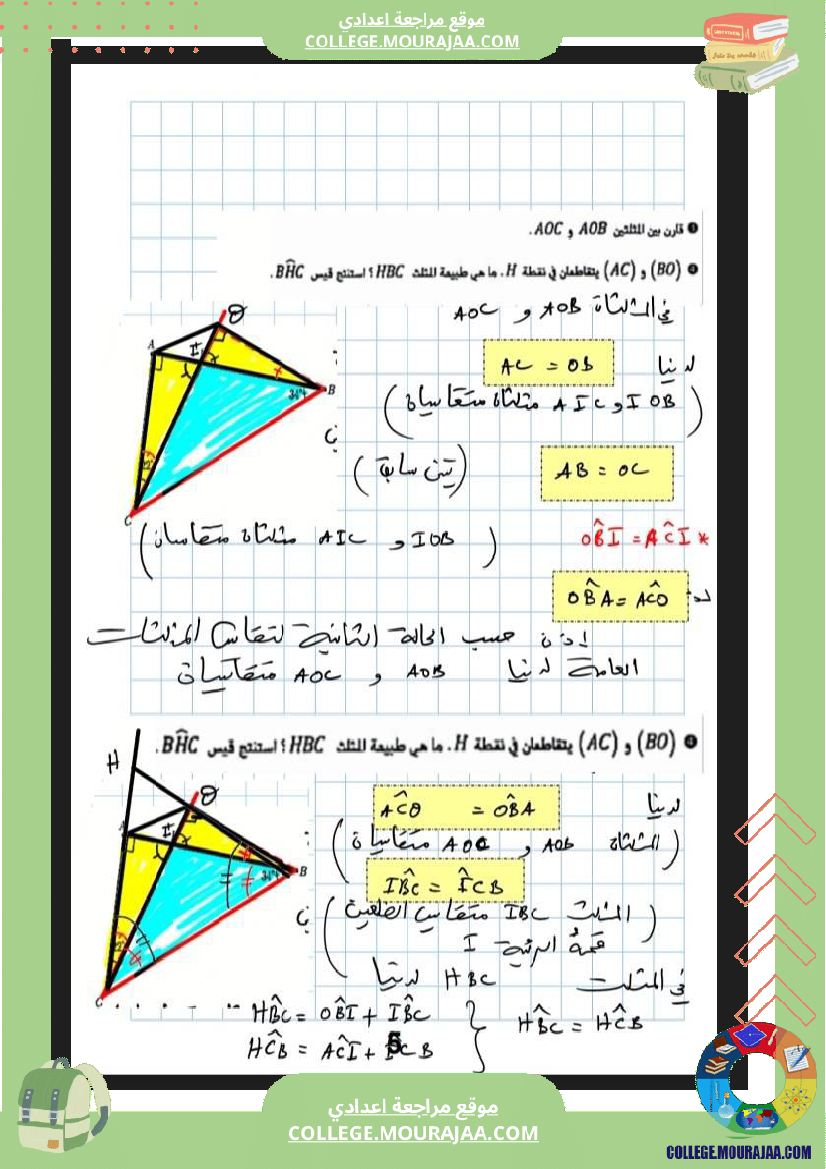 موقع مراجعة اعدادي
COLLEGE.MOURAJAA.COM
❸ قارن بين المثلثين AOB و AOC.
❹ (BO) و (AC) يتقاطعان في نقطة H. ما هي طبيعة المثلث HBC ؟ استنتج قيس BĤC.
في المثلثاة AOB و AOC
لدينا AC = OB
(IOB و AIC مثلثاة متقاسيان)
AB = OC (تبين سابقا)
* OB̂I = AĈI (IOB و AIC مثلثاة متقاسيان)
OB̂A = AĈO
إذن حسب الحالة الثانية لتقاس المثلثات
العامة لدينا AOB و AOC متقاسيان
O
A
I
B
C
❹ (BO) و (AC) يتقاطعان في نقطة H. ما هي طبيعة المثلث HBC ؟ استنتج قيس BĤC.
H
O
A
I
B
C
لدينا AĈO = OB̂A
(المثلثاة AOB و AOC متقاسيان)
IB̂C = IĈB
(المثلث IBC متقاس الضلعين
قمة الرئيسية I)
في المثلث HBC لدينا
HB̂C = OB̂I + IB̂C
HĈB = AĈI + IĈB
HB̂C = HĈB
5
موقع مراجعة اعدادي
COLLEGE.MOURAJAA.COM
COLLEGE.MOURAJAA.COM